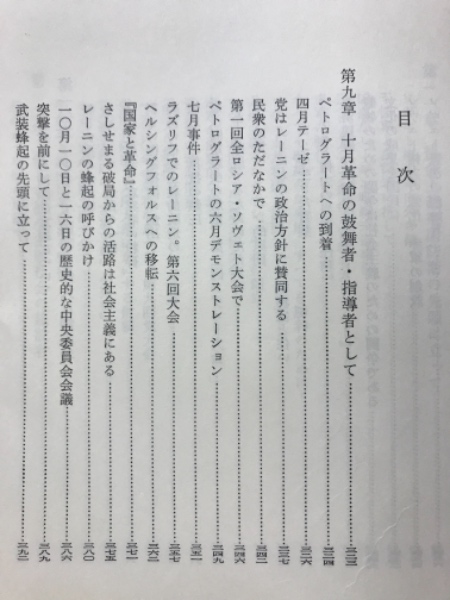 目次
第九章 十月革命の鼓舞者・指導者として
ペトログラートへの到着
四月テーゼ
党はレーニンの政治方針に賛同する
民衆のただなかで
第一回全ロシア・ソヴェト大会で
ペトログラートの六月デモンストレーション
七月事件
ラズリフでのレーニン。第六回大会
ヘルシングフォルスへの移転
『国家と革命』
さしせまる破局からの活路は社会主義にある
レーニンの蜂起の呼びかけ
一〇月一〇日と一六日の歴史的な中央委員会会議
突撃を前にして
武装蜂起の先頭に立って